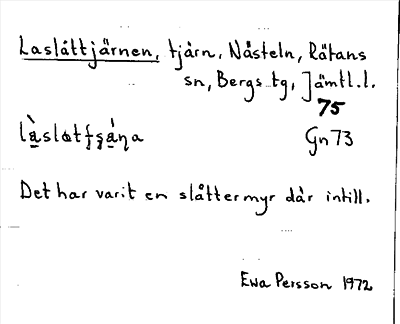 Laslåttjärnen, tjärn, Nästeln, Rätans
sn, Bergs tg, Jämtl.l.
75
Gn 73
Det har varit en slåttermyr där intill.
Ewa Persson 1972